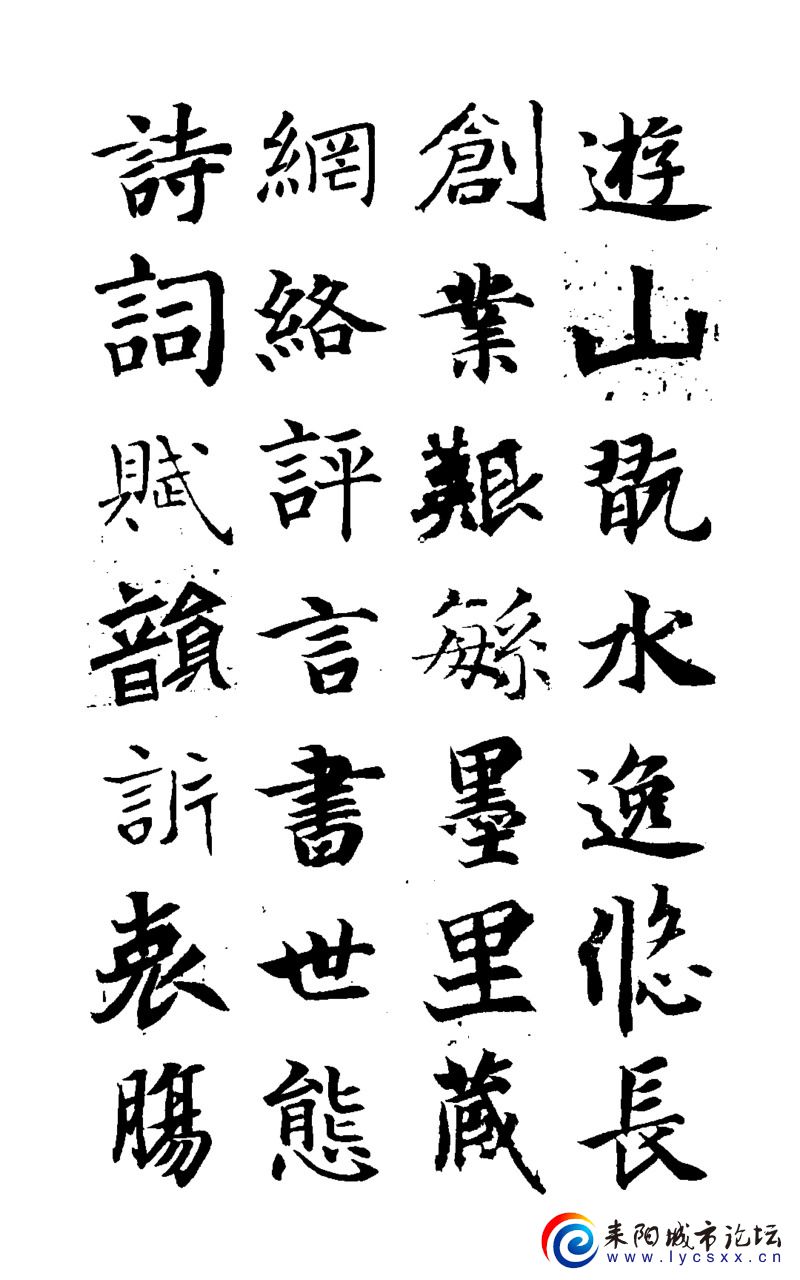 遊山翫水逸悠長
創業艱緐墨里藏
網絡評言書世態
詩詞賦韻訴衷腸
耒阳城市论坛
www.lycsxx.cn